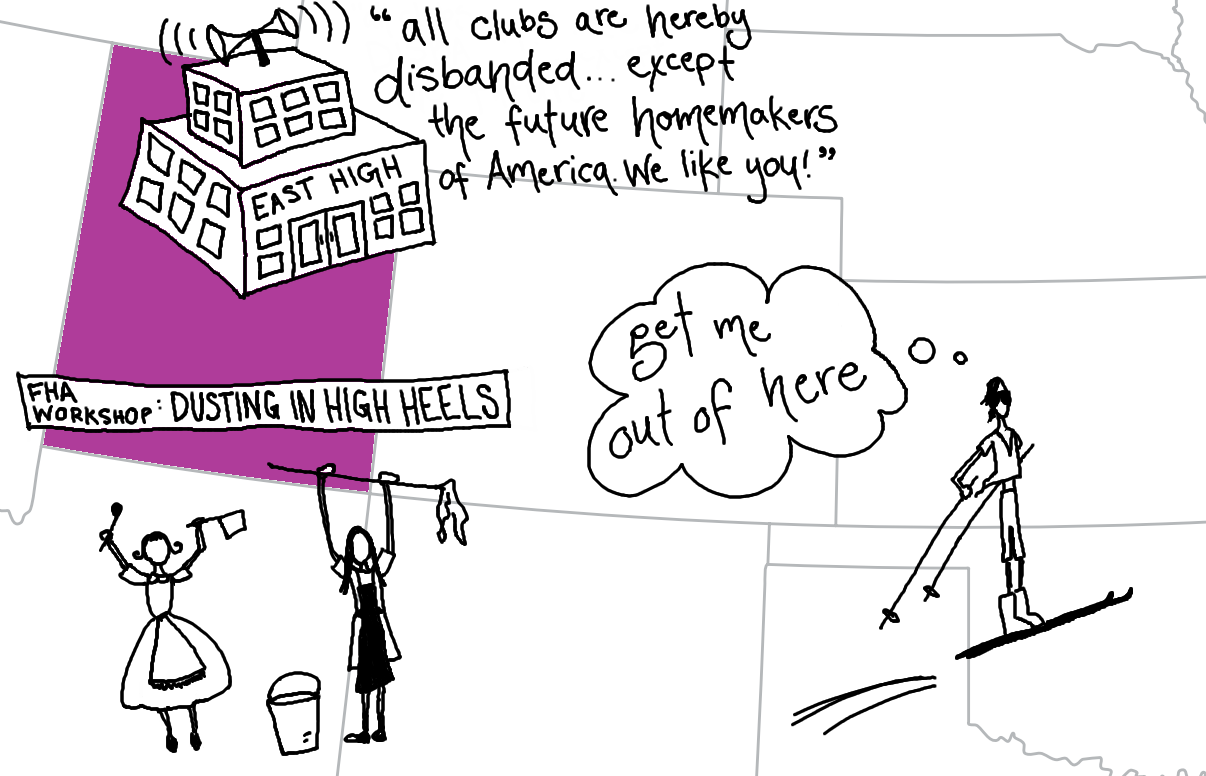 “all clubs are hereby
disbanded... except
the future homemakers
of America. We like you!”
EAST HIGH
get me
out of here
FHA
WORKSHOP: DUSTING IN HIGH HEELS